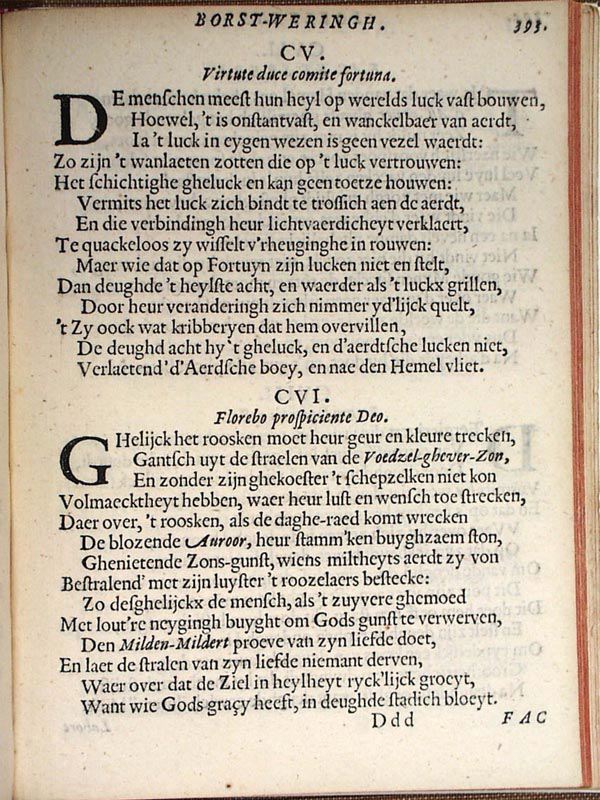 BORST-WERINGH. 393.
CV.
Virtute duce comite fortuna.
DE menſchen meeſt hun heyl op werelds luck vaſt bouwen,
Hoewel, 't is onſtantvaſt, en wanckelbaer van aerdt,
Ia 't luck in eygen wezen is geen vezel waerdt:
Zo zijn 't wanlaeten zotten die op 't luck vertrouwen:
Het ſchichtighe gheluck en kan geen toetze houwen:
Vermits het luck zich bindt te troſſich aen de aerdt,
En die verbindingh heur lichtvaerdicheyt verklaert,
Te quackeloos zy wiſſelt v'rheuginghe in rouwen:
Maer wie dat op Fortuyn zijn lucken niet en ſtelt,
Dan deughde 't heylſte acht, en waerder als 't luckx grillen,
Door heur veranderingh zich nimmer yd'lijck quelt,
't Zy oock wat kribberyen dat hem overvillen,
De deughd acht hy 't gheluck, en d'aerdtſche lucken niet,
Verlaetend' d'Aerdſche boey, en nae den Hemel vliet.
CVI.
Florebo proſpiciente Deo.
GHelijck het roosken moet heur geur en kleure trecken,
Gantſch uyt de ſtraelen van de Voedzel-ghever-Zon,
En zonder zijn ghekoeſter 't ſchepzelken niet kon
Volmaecktheyt hebben, waer heur luſt en wensch toe ſtrecken,
Daer over, 't roosken, als de daghe-raed komt wrecken
De blozende Auroor, heur ſtamm'ken buyghzaem ſton,
Ghenietende Zons-gunſt, wiens miltheyts aerdt zy von
Beſtralend' met zijn luyſter 't roozelaers beſtecke:
Zo deſghelijckx de menſch, als 't zuyvere ghemoed
Met lout're neygingh buyght om Gods gunſt te verwerven,
Den Milden-Mildert proeve van zyn liefde doet,
En laet de ſtralen van zyn liefde niemant derven,
Waer over dat de Ziel in heylheyt ryck'lijck groeyt,
Want wie Gods graçy heeft, in deughde ſtadich bloeyt.
Ddd FAC